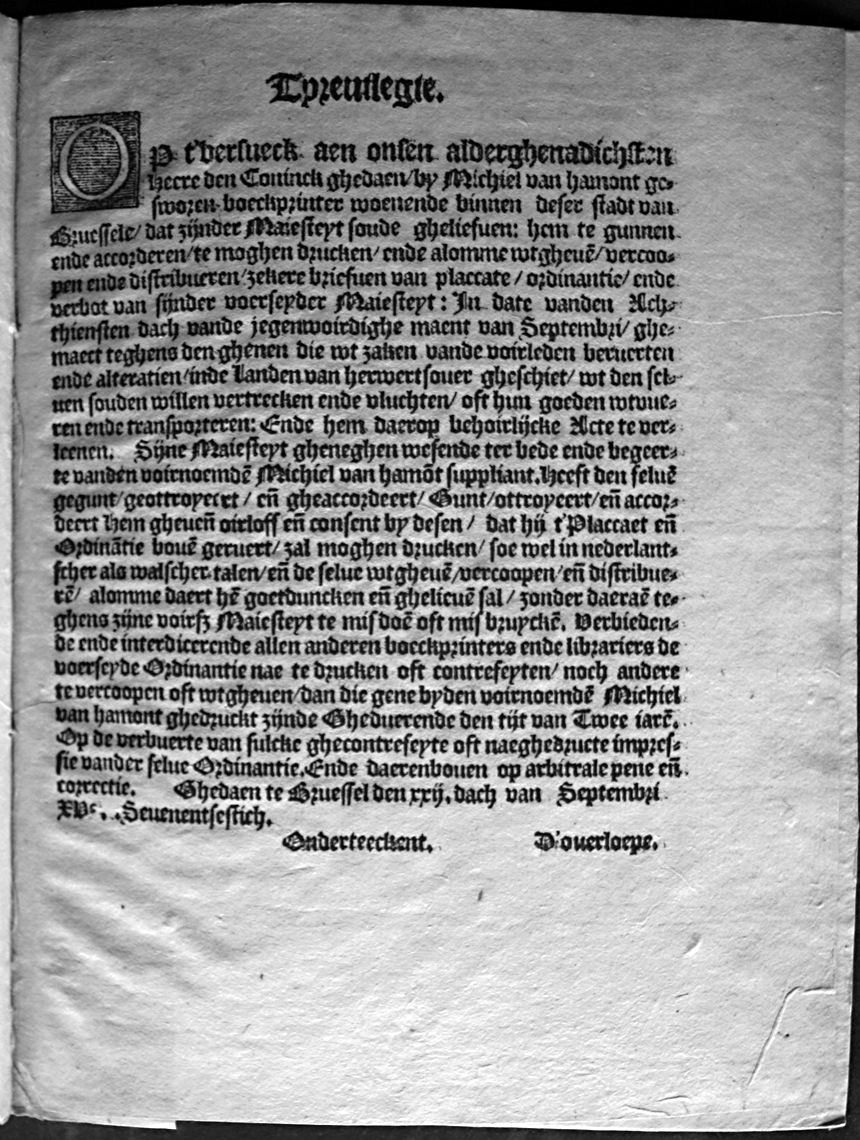 Tpreuilegie.
OP t'versueck aen onsen alderghenadichsten
Heere den Coninck ghedaen/by Michiel van hamont ge⸗
sworen boeckprinter woenende binnen deser stadt van
Bruessele/ dat zijnder Maiesteyt soude gheliefuen: hem te gunnen
ende accorderen/te moghen drucken/ ende alomme wtgheuē/vercoo⸗
pen ende distribueren/zekere briefuen van placcate / ordinantie/ ende
verbot van sijnder voerseyder Maiesteyt: In date vanden Ach⸗
thiensten dach vande jegenwoirdighe maent van Septembri/ ghe⸗
maect teghens den ghenen die wt zaken vande voirleden beruerten
ende alteratien/inde Landen van herwertsouer gheschiet/ wt den sel⸗
uen souden willen vertrecken ende vluchten/ oft hun goeden wtvue⸗
ren ende transporteren: Ende hem daerop behoirlijcke Acte te ver⸗
leenen. Sijne Maiesteyt gheneghen wesende ter bede ende begeer⸗
te vanden voirnoemdē Michiel van hamōt suppliant. Heeft den seluē
gegunt/geottroyeert / eñ gheaccordeert/ Gunt/ottroyeert/eñ accor⸗
deert Hem gheueñ oirloff eñ consent by desen / dat hij t'Placcaet eñ
Ordinātie bouē geruert/ zal moghen drucken/ soe wel in nederlant⸗
scher als walscher talen/eñ de selue wtgheuē/vercoopen/eñ distribue⸗
rē/ alomme daert hē goetduncken eñ ghelieuē sal / zonder daeraē te⸗
ghens zijne voirsz Maiesteyt te misdoē oft misbruyckē. Verbieden⸗
de ende interdicerende allen anderen boeckprinters ende librariers de
voerseyde Ordinantie nae te drucken oft contrefeyten/ noch andere
te vercoopen oft wtgheuen/dan die gene byden voirnoemdē Michiel
van hamont ghedruckt zijnde Gheduerende den tijt van Twee iarē.
Op de verbuerte van sulcke ghecontrefeyte oft naeghedructe impres⸗
sie vander selue Ordinantie. Ende daerenbouen op arbitrale pene eñ
correctie. Ghedaen te Bruessel den xxij. dach van Septembri
XVc. Seuenentsestich.
Onderteeckent. D'ouerloepe.